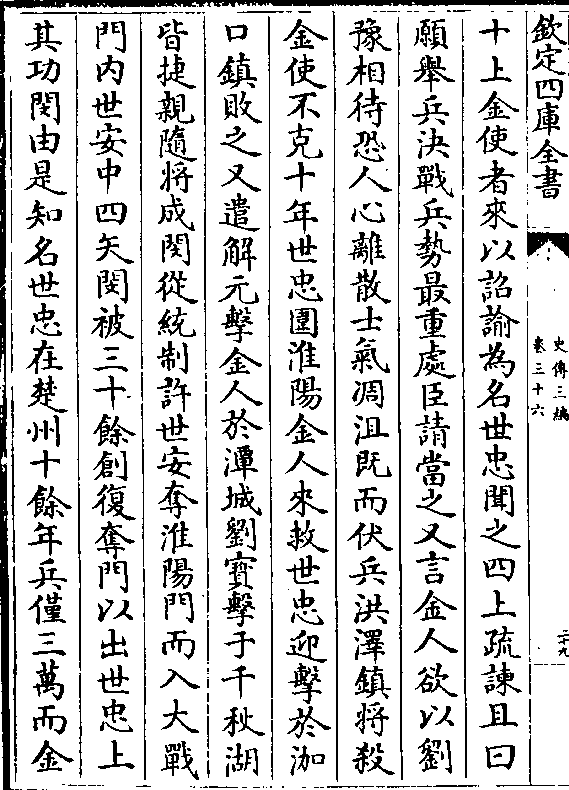 欽定四庫全書
史傳三編
卷三十六
二十九
十上金使者來以詔諭為名世忠聞之四上疏諫且曰
願舉兵決戰兵勢最重處臣請當之又言金人欲以劉
豫相待恐人心離散士氣凋沮既而伏兵洪澤鎮將殺
金使不克十年世忠圍淮陽金人來救世忠迎擊於泇
口鎮敗之又遣解元擊金人於潭城劉寳擊于千秋湖
皆捷親隨將成閔從統制許世安奪淮陽門而入大戰
門内世安中四矢閔被三十餘創復奪門以出世忠上
其功閔由是知名世忠在楚州十餘年兵僅三萬而金